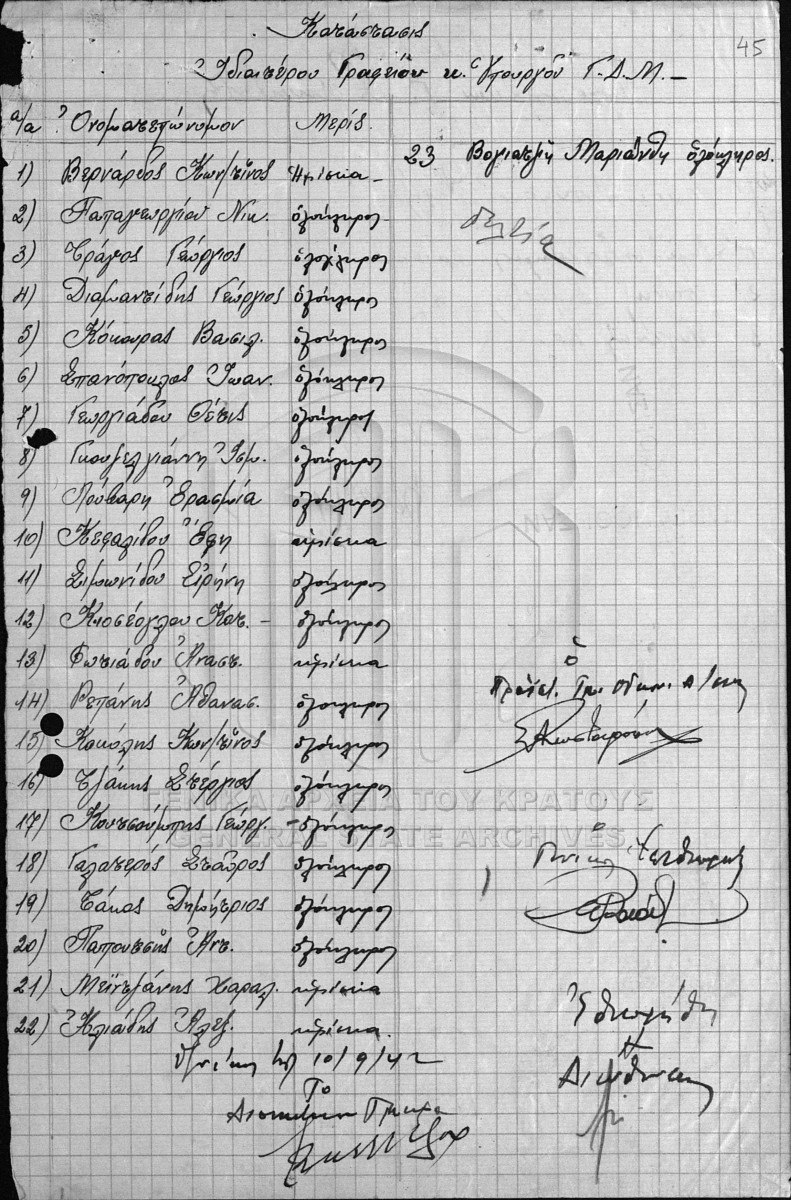 45
Κατάστασις
Ἰδιαιτέρου Γραφείου κ. Ὑπουργοῦ Γ.Δ.Μ. –
α/α Ὀνοματεπώνυμον Μερίς.
1) Βερνάρδος Κων/τῖνος ἡμίσεια –
2) Παπαγεωργίου Νικ. ὁλόκληρος
3) Τράγος Γεώργιος ὁλόκληρος
4) Διαμαντίδης Γεώργιος ὁλόκληρος
5) Κόκουρας Βασιλ. ὁλόκληρος
6) Σπανόπουλος Ἰωαν. ὁλόκληρος
7) Γεωργιάδου Θέτις ὁλόκληρος
8) Γκουμελγιάννη Ἰσμ. ὁλόκληρος
9) Λούβαρη Ἐρασμία ὁλόκληρος
10) Κεφαλίδου Ἔφη ἡμίσεια
11) Σιμωνίδου Εἰρήνη ὁλόκληρος
12) Κιοσέογλου Κατ. – ὁλόκληρος
13) Φωτιάδου Ἀναστ. ἡμίσεια
14) Ρεπάνης Ἀθανασ. ὁλόκληρος
15) Κακάλης Κων/τῖνος ὁλόκληρος
16) Τζάκης Στέργιος ὁλόκληρος
17) Κουτσούμπης Γεώργ. – ὁλόκληρος
18) Γαλατερός Σταῦρος ὁλόκληρος
19) Τάκας Δημήτριος ὁλόκληρος
20) Παπουτσῆς Ἀντ. ὁλόκληρος
21) Μεϊντζάνης Χαραλ. ἡμίσεια
22) Ἠλιάδης Ἀλεξ. ἡμίσεια.
10/9/42
Τὸ
23 Βογιατζῆ Μαριάνθη ὁλόκληρος.
δελτία
ὁ
Ἐθεωρήθη
Ἡ
ΓΕΝΙΚΑ ΑΡΧΕΙΑ ΤΟΥ ΚΡΑΤΟΥΣ
GENERAL STATE ARCHIVES